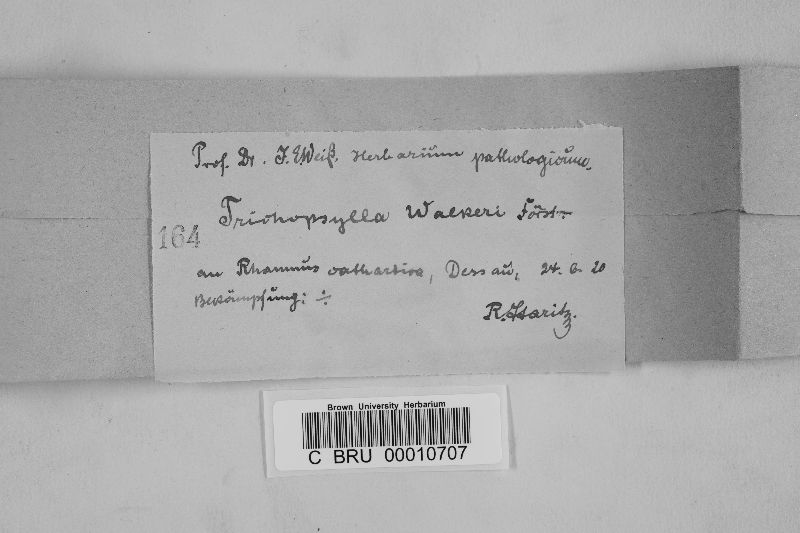 Prof. Dr. J. E. Weiß, Herbarium pathologicum.
Trichopsylla Walkeri Först
164
an Rhamnus cathartica, Dessau, 24. 6. 20
Bekämpfung: ÷
R. Staritz.
Brown University Herbarium
C BRU 00010707